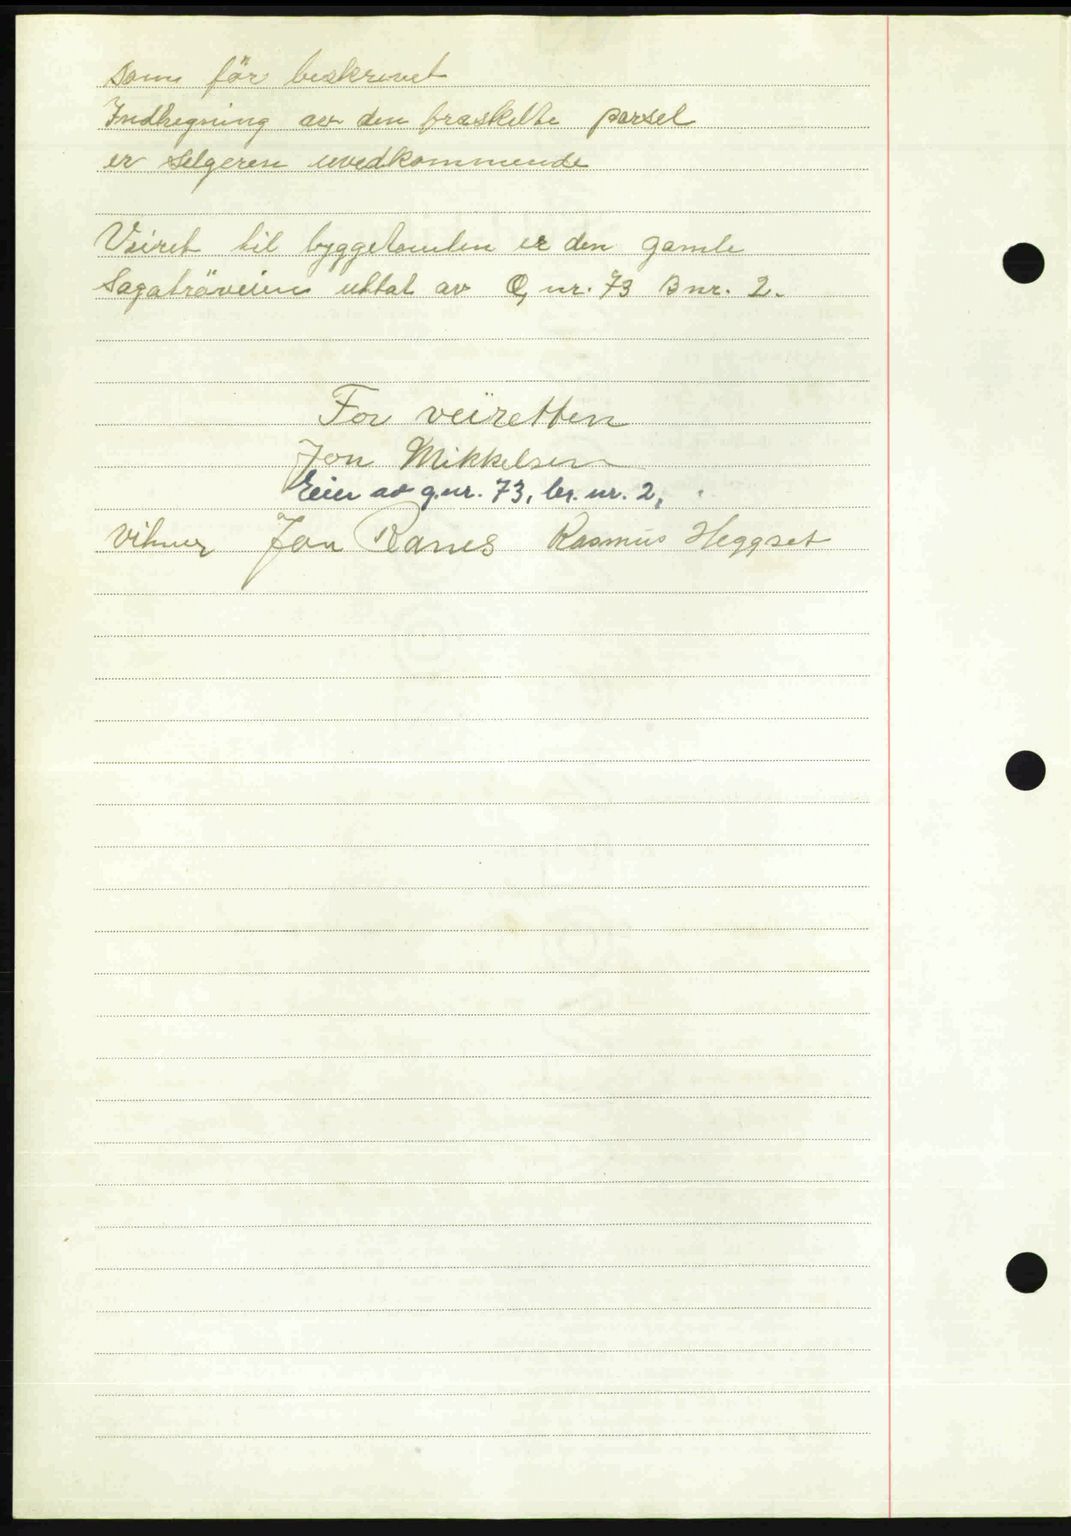 som för beskrevet
Indhegning av den fraskelte parsel
er selgeren uvedkommende
Veiret til byggetomten er den gamle
Sagatröveien uttat av G, nr. 73 Bnr. 2.
For veiretten
Jon Mikkelsen
Eier av g.nr. 73, br. nr. 2,
Vitner Jon Ranes Rasmus Heggset